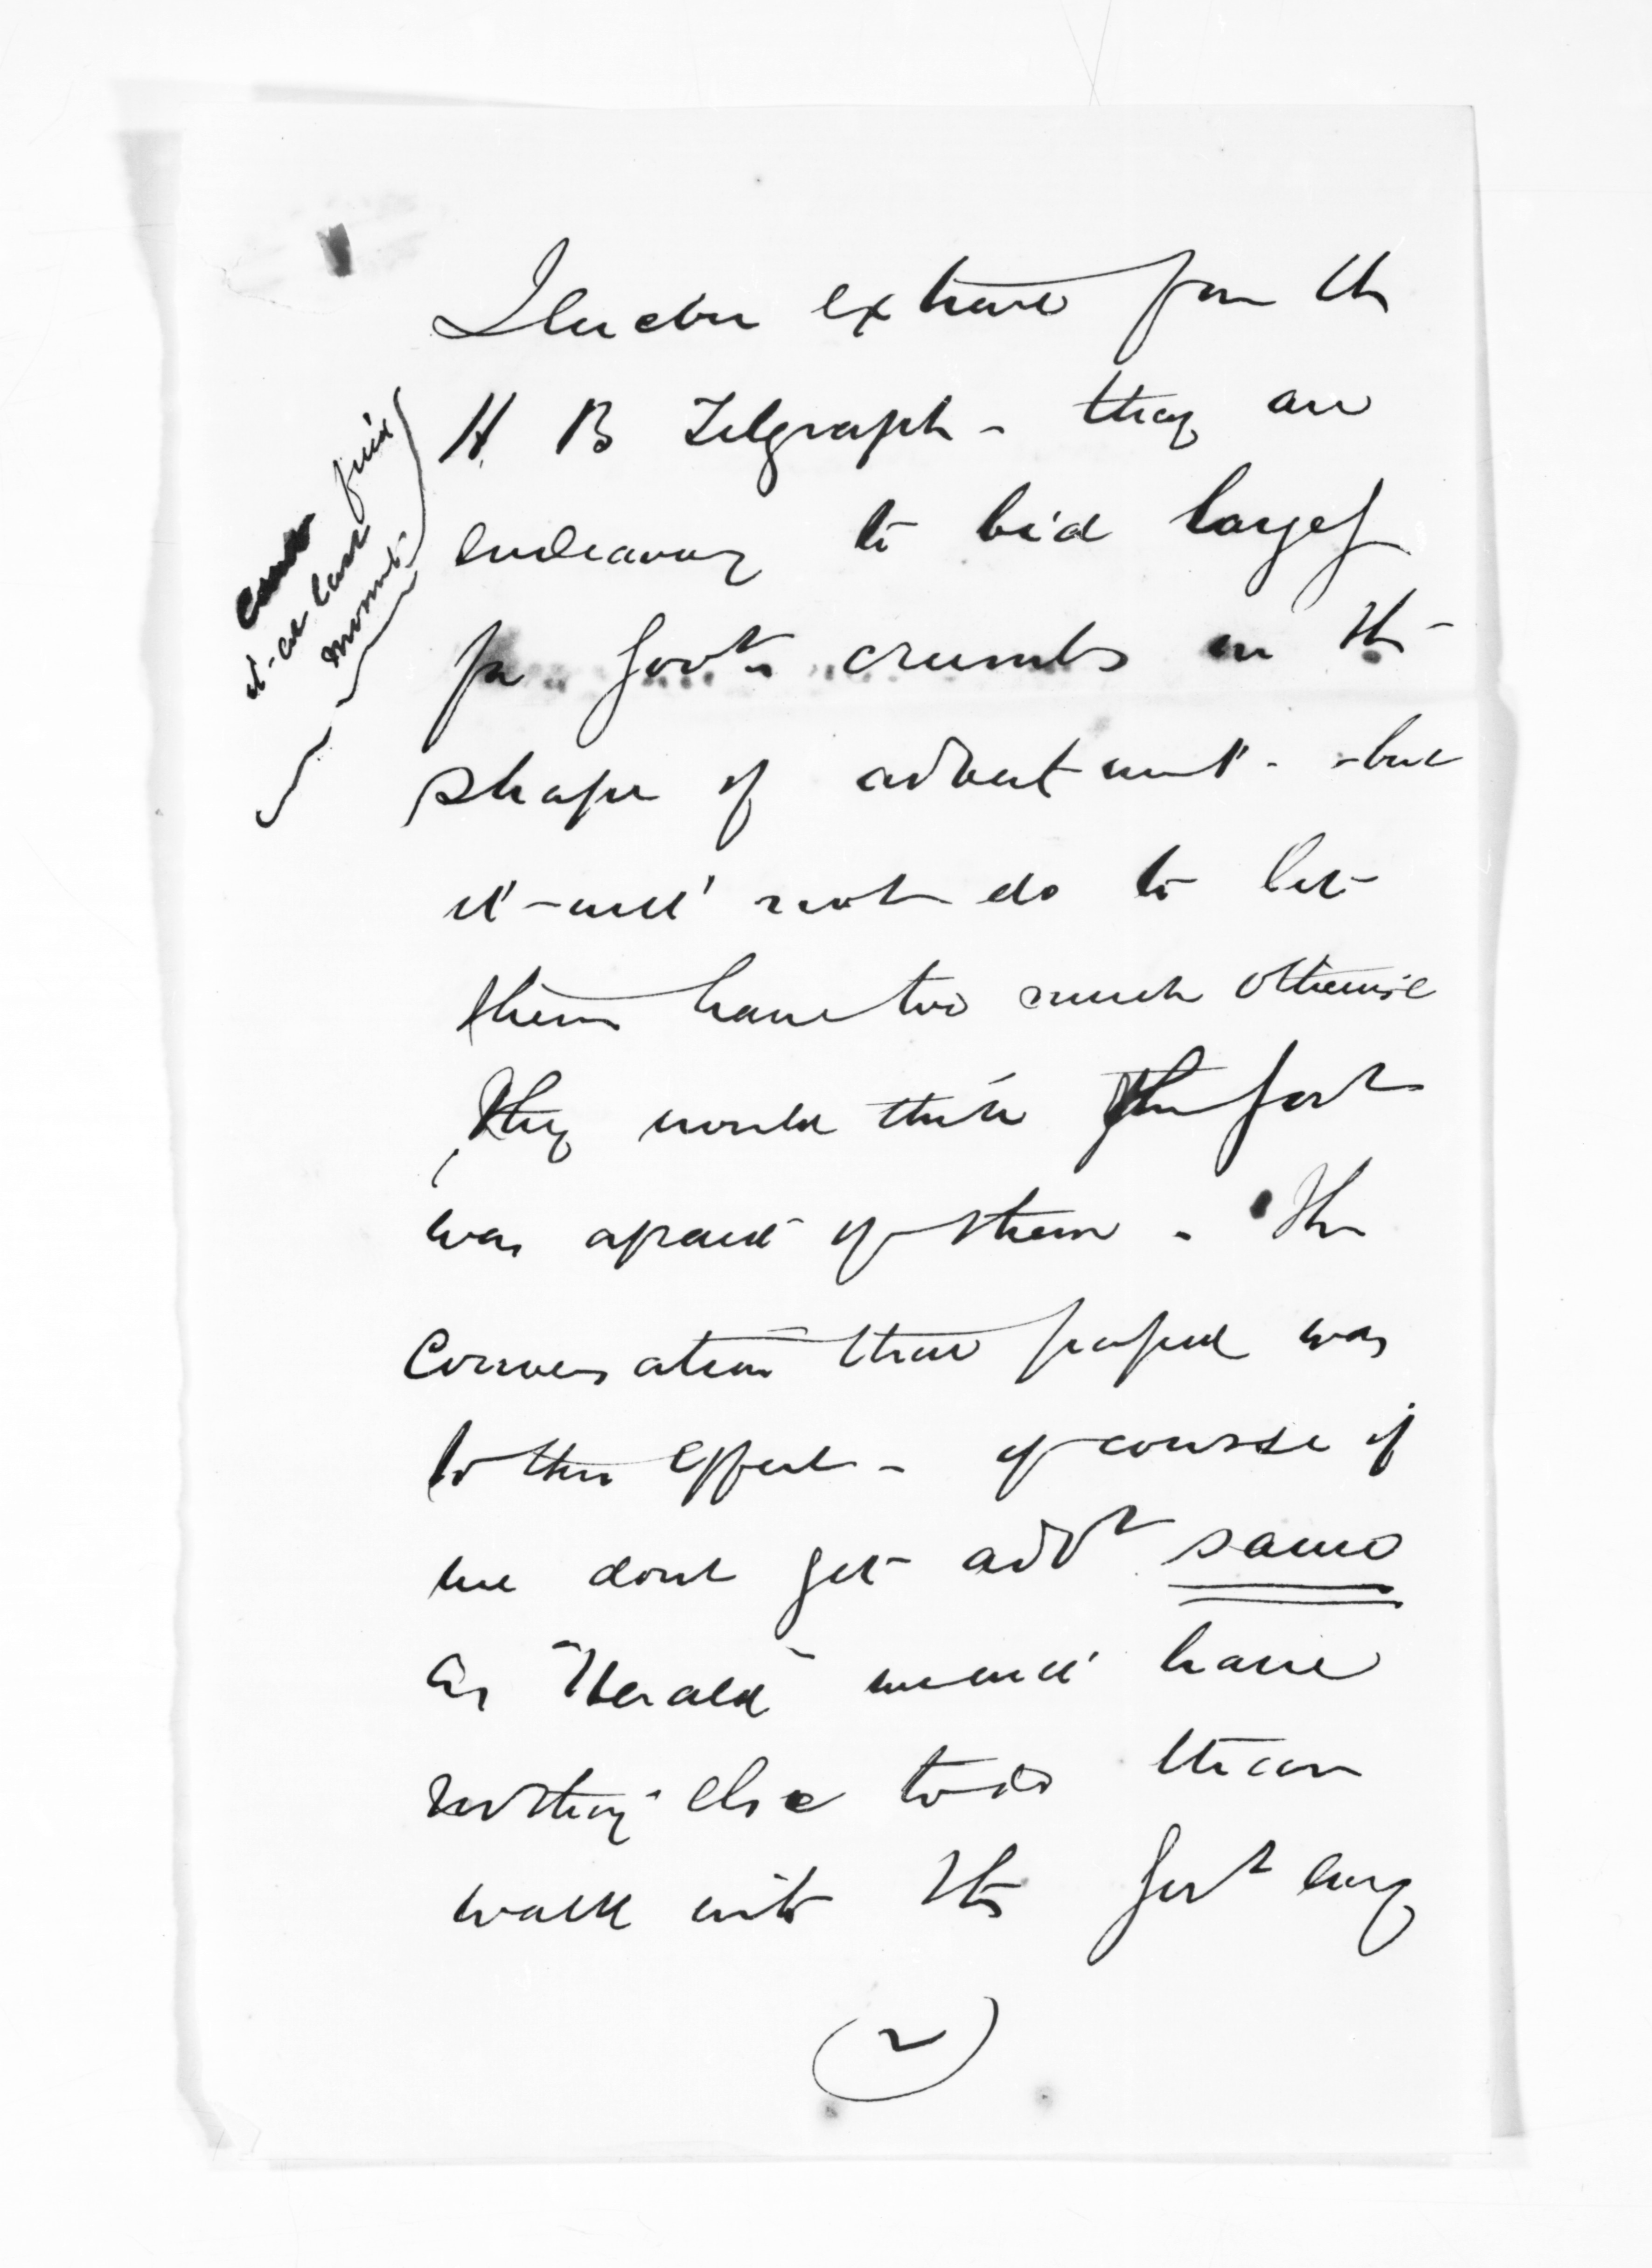 I enclose extract from the
H B Telegraph - they are
endeavorg to bid largely
for Govt crumbs in the
shape of advertments - but
it will not do to let
them have too much otherwise
they would think the Govt
was afraid of them . The
Conversation that passed was
to this effect - of course if
we dont get advt same
as "Herald" we will have
nothing else to do than
walk into the Govt every
(2)
cant find
it at last
moment